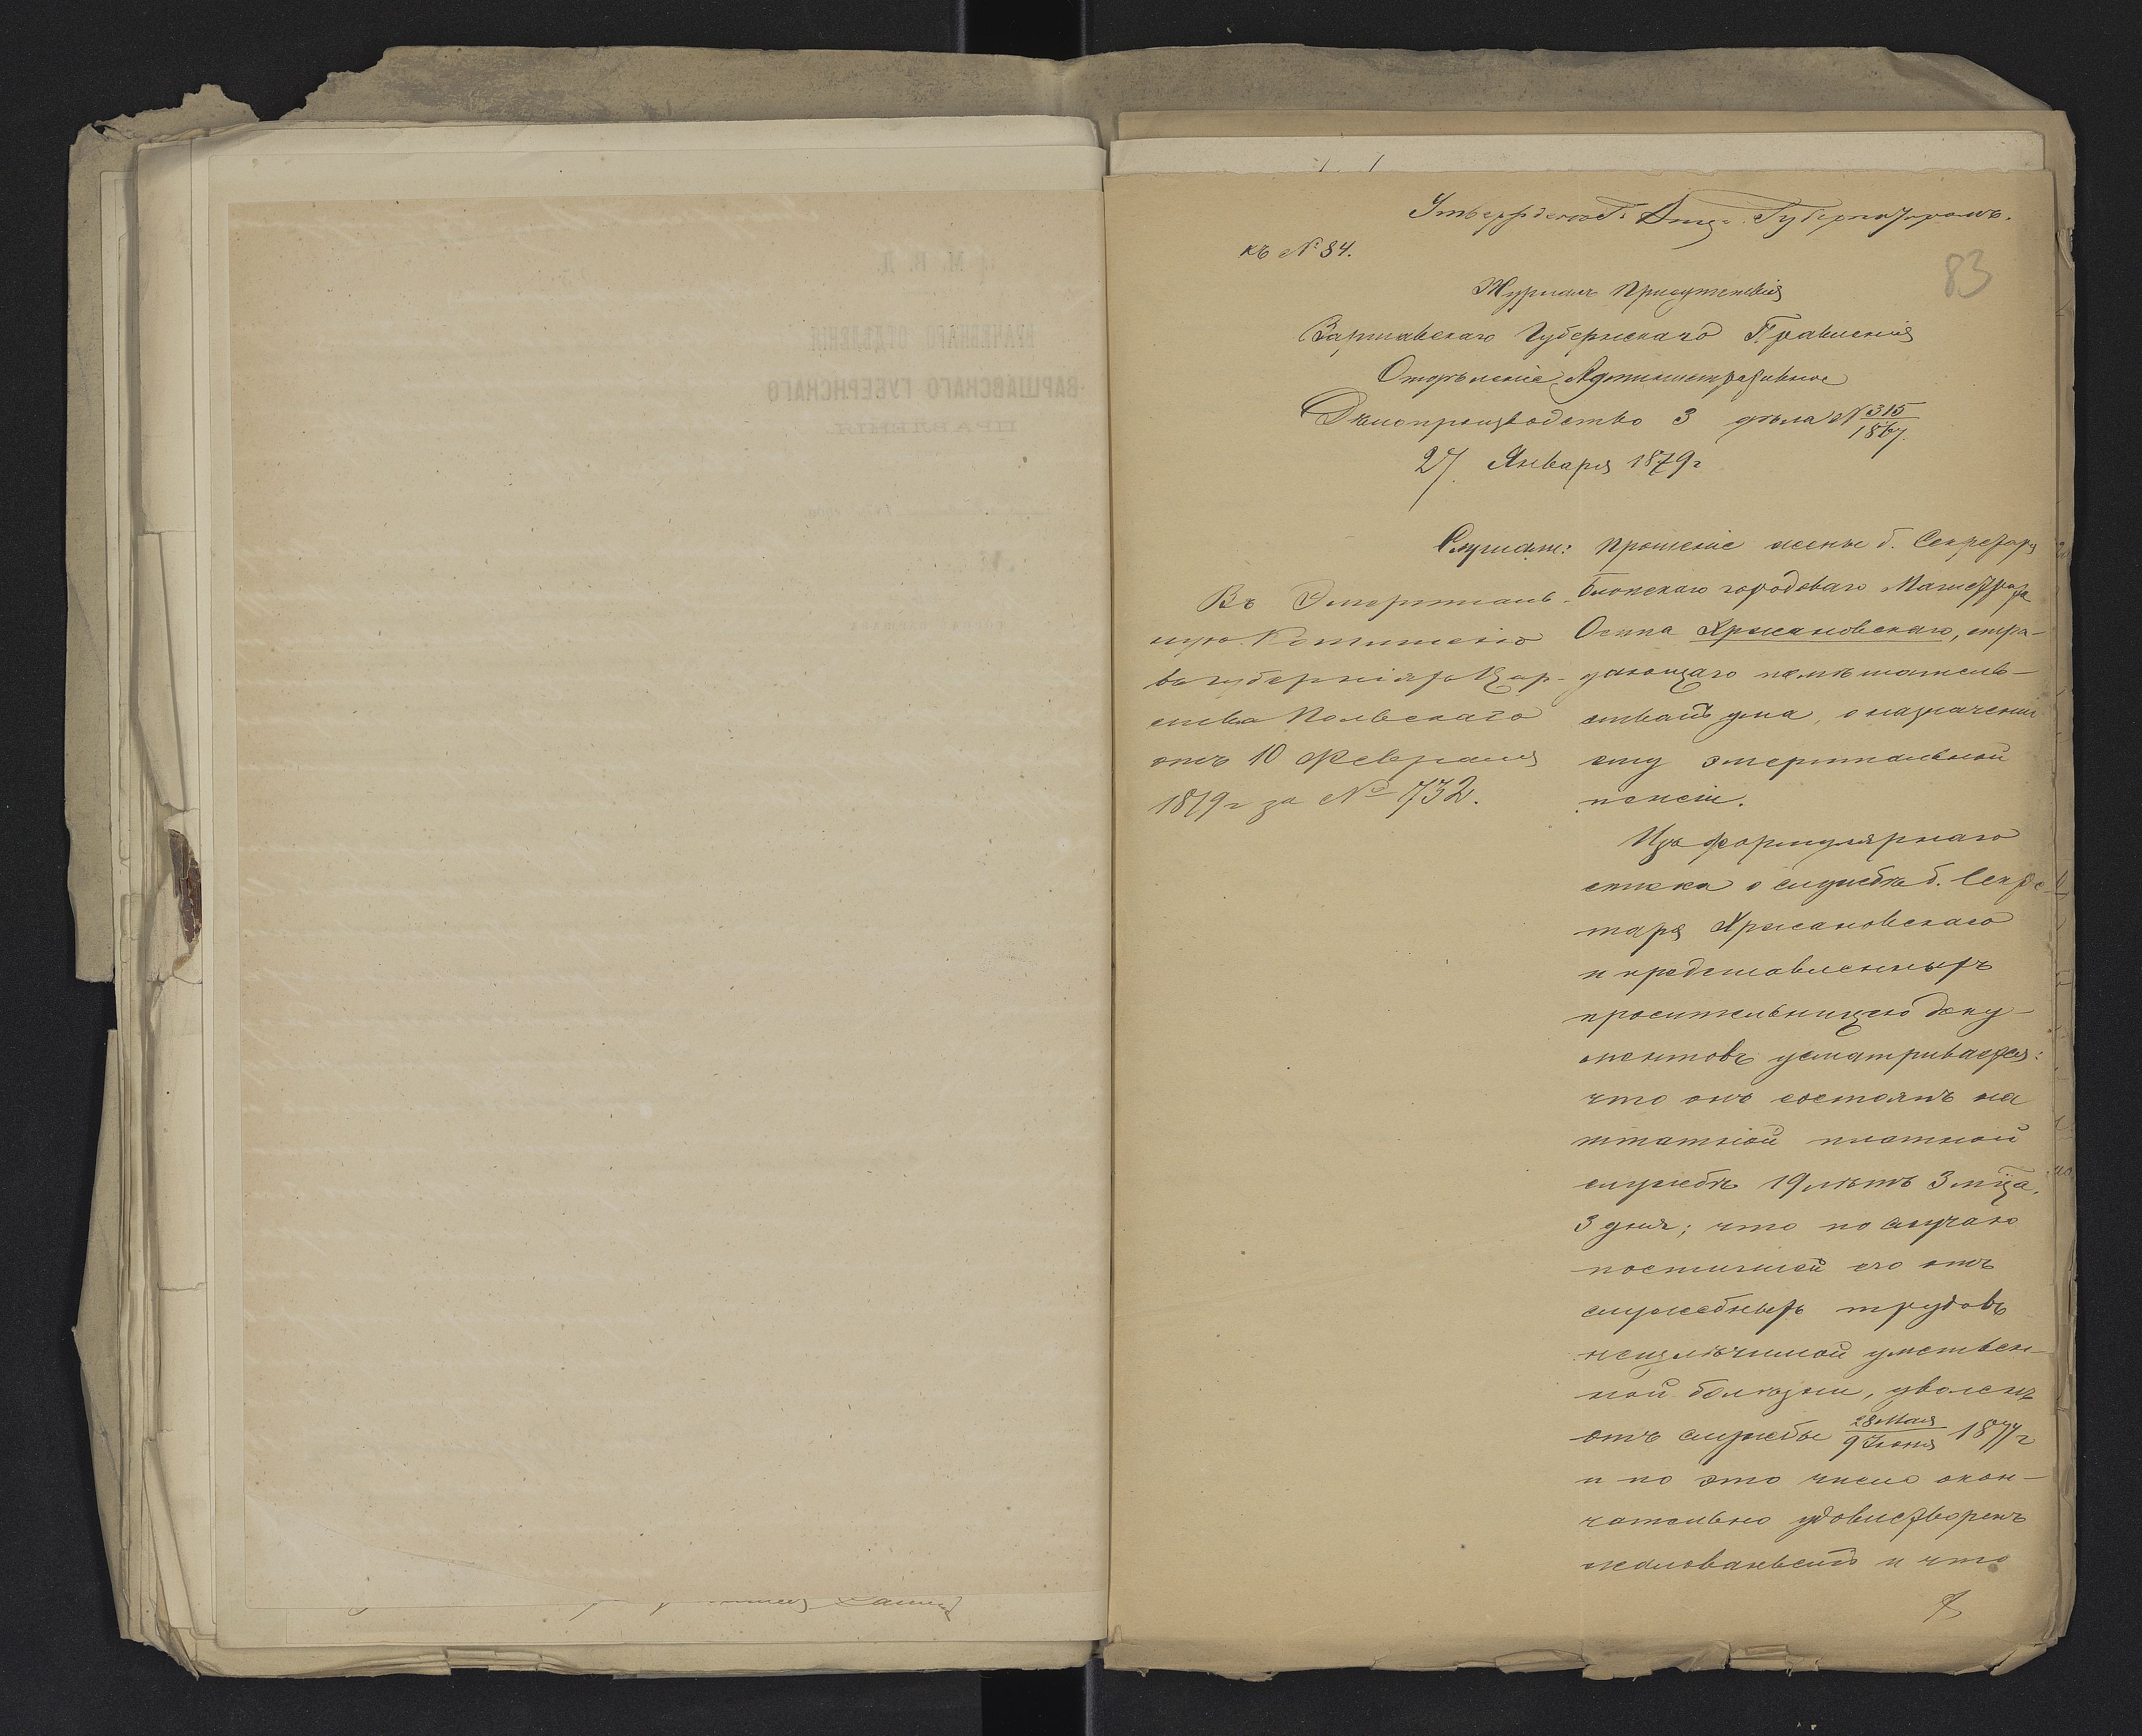 Утвержденъ Г. Вице-Губернаторомъ.
къ № 84.
83
Журналъ Присутствія
Варшавскаго Губернскаго Правленія
Отдѣленіе Административное
Дѣлопроизводство 3 дѣла № 315/1867
27 Января 1879 г
Слушали: Прошеніе жены б. Секретаря
Блонскаго городоваго Магистрата
Осипа Хржановскаго, стра-
дающаго помѣшатель-
ствомъ ума, о назначеніи
ему эмеритальной
пенсіи.
Въ Эмериталь-
ную Коммисію
въ губерніяхъ Цар-
ства Польскаго
отъ 10 Февраля
1879 г за № 732.
Изъ формулярнаго
списка о службѣ б. Секре-
таря Хржановскаго
и представленныхъ
просительницею доку-
ментовъ усматривается:
что онъ состоялъ на
штатной платной
службѣ 19 лѣтъ 3 мца.
3 дня; что по случаю
постигшей его отъ
служебныхъ трудовъ
неизлѣчимой умствен-
ной болѣзни, уволенъ
отъ службы 28 Мая/9 Іюня 1877 г
и по это число окон-
чательно удовлетворенъ
жалованьемъ и что
ВРАЧЕБНАГО ОТДѢЛЕНІЯ
ВАРШАВСКАГО ГУБЕРНСКАГО
ПРАВЛЕНІЯ